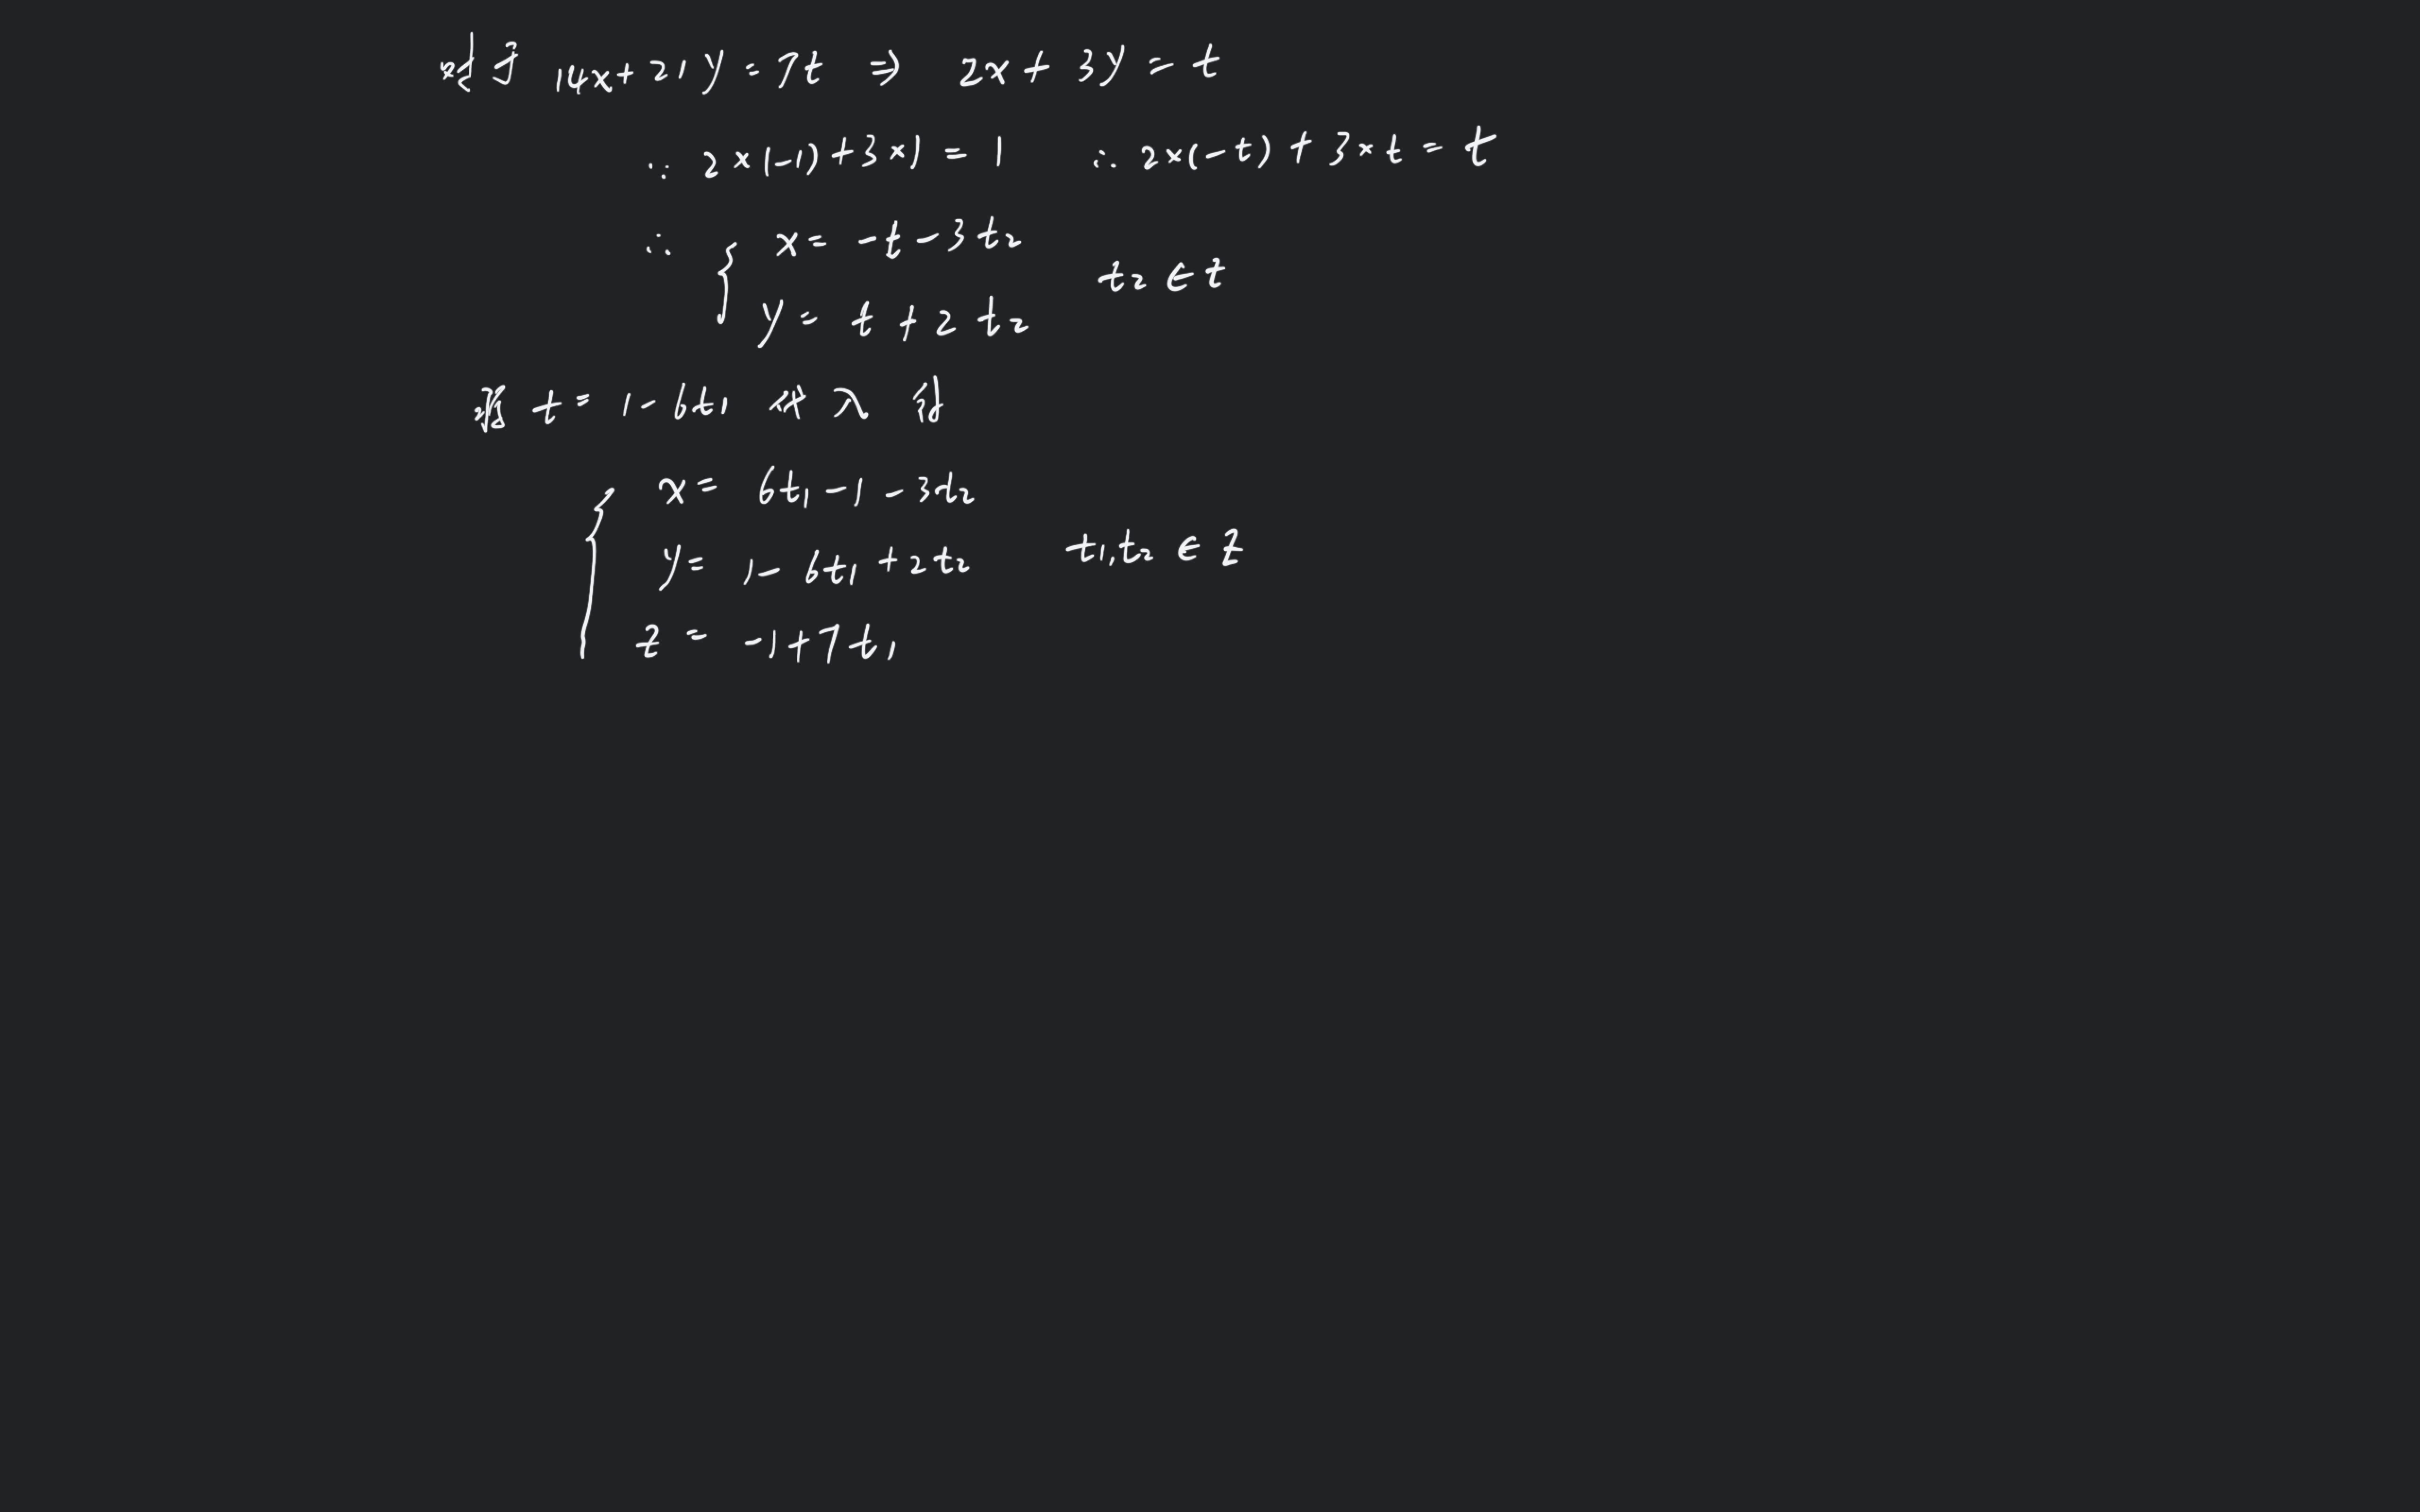 对于 14x+21y=7t ⇒ 2x+3y=t
∵ 2×(-1)+3×1=1 ∴ 2×(-t)+3×t=t
∴ { x=-t-3t₂
y=t+2t₂ t₂∈t
将 t=1-6t₁ 代入得
{ x=6t₁-1-3t₂
y=1-6t₁+2t₂ t₁,t₂∈Z
z=-1+7t₁